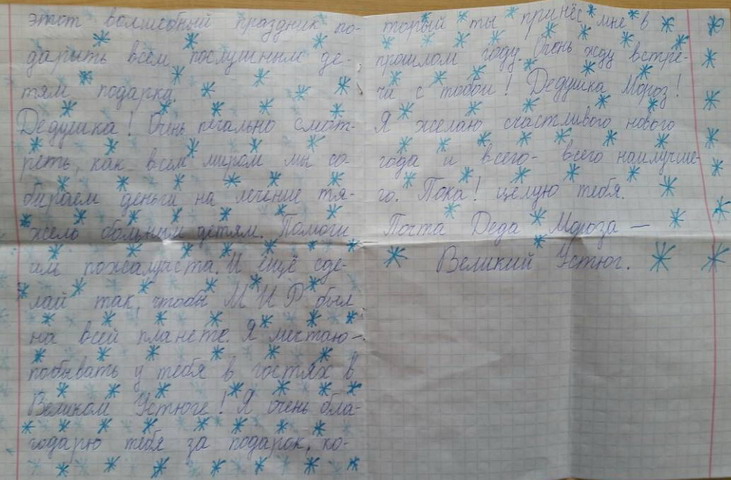 этот волшебный праздник по-
дарить всем послушным де-
тям подарка.
Дедушка! Очнь печально смот-
реть, как всем миром мы со
бираем деньги на лечение тя-
жело больным детям. Помоги
им пожалуйста. И ещё сде-
лай так чтобы МИР был
на всей планете. Я мечтаю
побывать у тебя в гостях в
Великом Устюге! Я очень бла-
годарю тебя за подарок, ко-
торый ты принёс мне в
прошлом году. Очнь жду встре-
чи с тобой! Дедушка Мороз!
Я желаю счастливого нового
года и всего-всего наилучше-
го. Пока! целую тебя.
Почта Деда Мороза —
Великий Устюг.